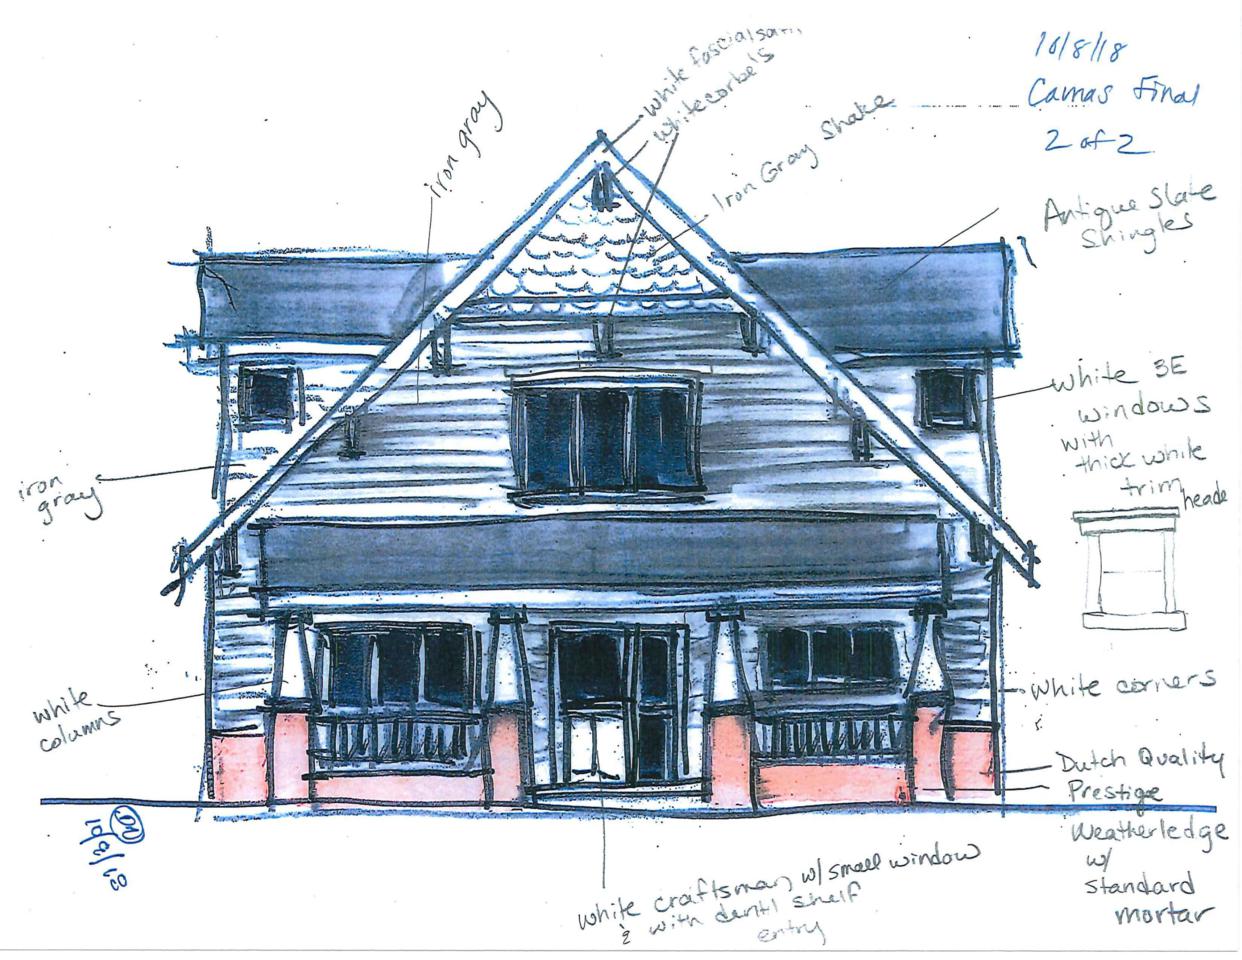 10/8/18
Camas Final
2 of 2
white fascia/soffit
white corbe's
iron gray
Iron Gray Shake
Antique Slate
Shingles
white 3E
windows
with
thick white
trim
heade
iron
gray
white
columns
white corners
Dutch Quality
Prestige
Weatherledge
w/
Standard
mortar
white craftsman w/ small window
& with dentl shelf
entry
10/8/18